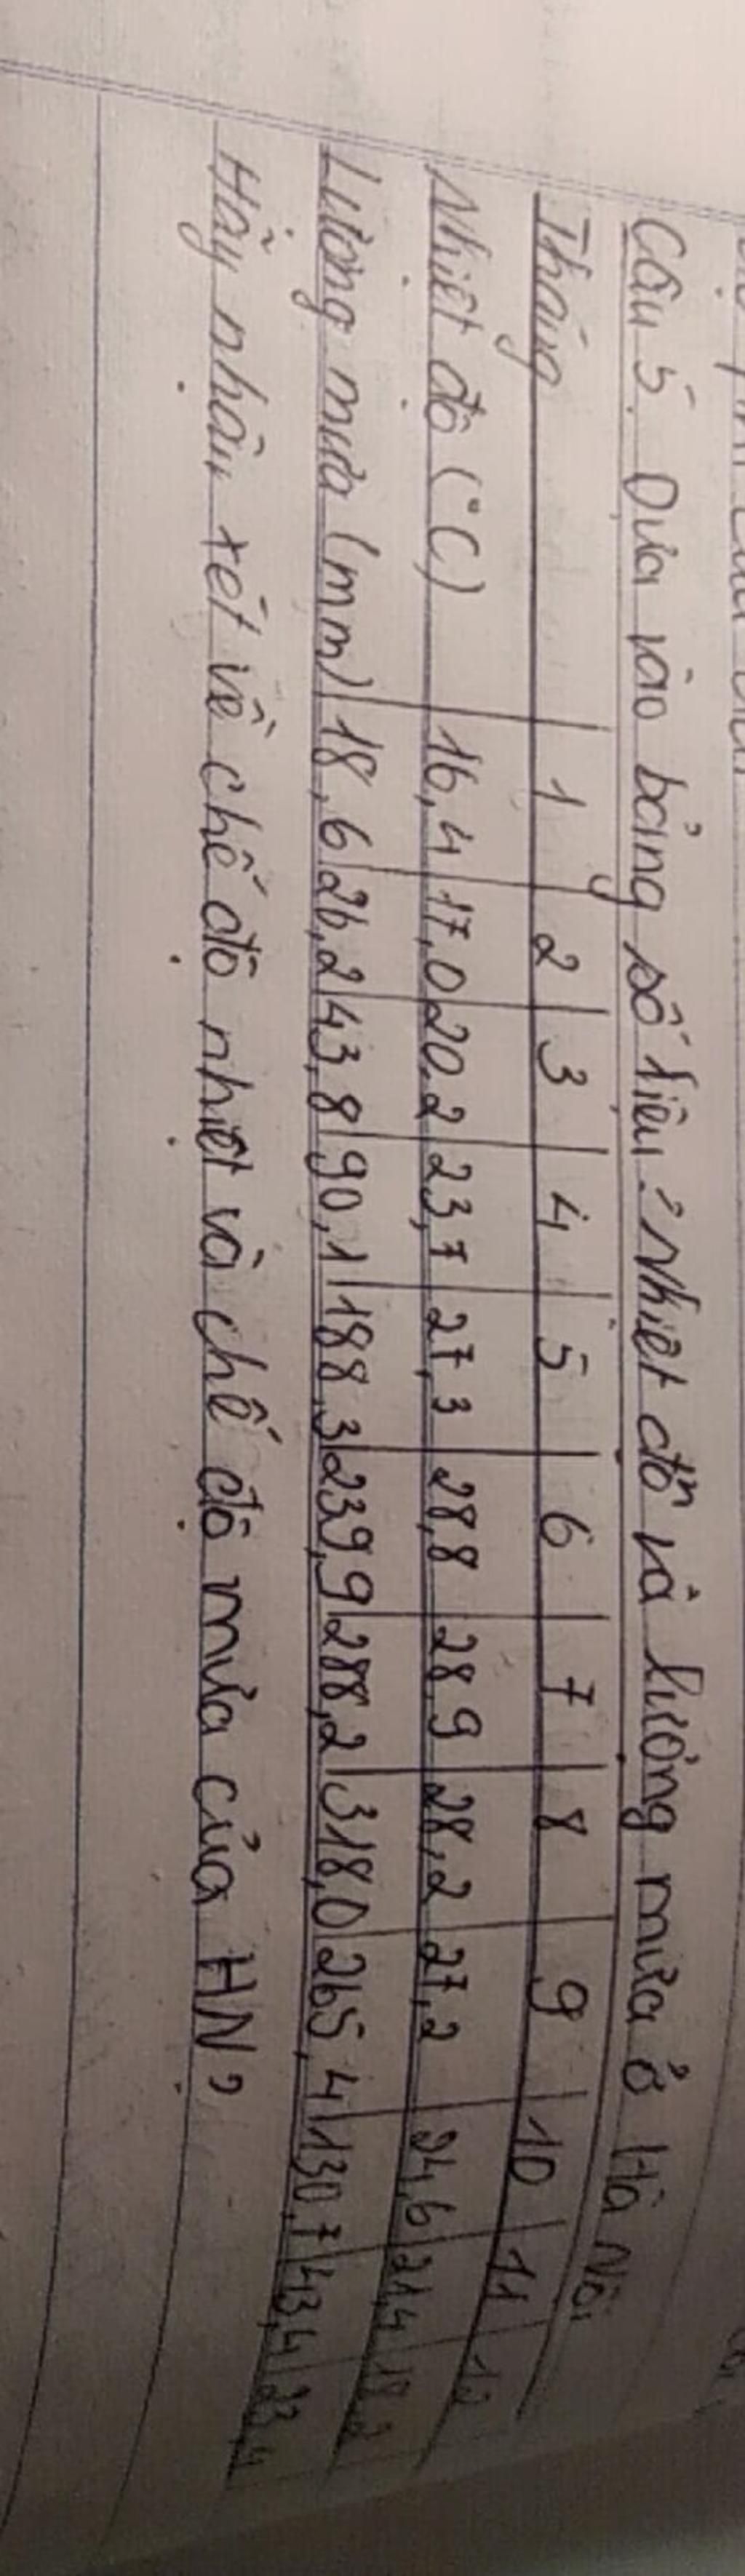 Câu 5. Dựa vào bảng số liệu: Nhiệt độ và lượng mưa ở Hà Nội
Tháng 1 2 3 4 5 6 7 8 9 10 11 12
Nhiệt độ (°C) 16,4 17,0 20,2 23,7 27,3 28,8 28,9 28,2 27,2 24,6 21,4 18,2
Lượng mưa (mm) 18,6 26,2 43,8 90,1 188,3 239,9 288,2 318,0 265,4 130,7 43,4 23,4
Hãy nhận xét về chế độ nhiệt và chế độ mưa của HN?